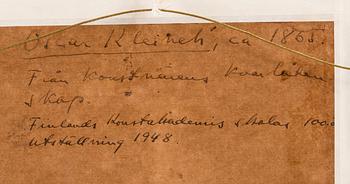 Oscar Kleineh, ca 1865.
Från konstnärens kvarlåten
skap.
Finlands Konstakademis skolas 100.
utställning 1948.